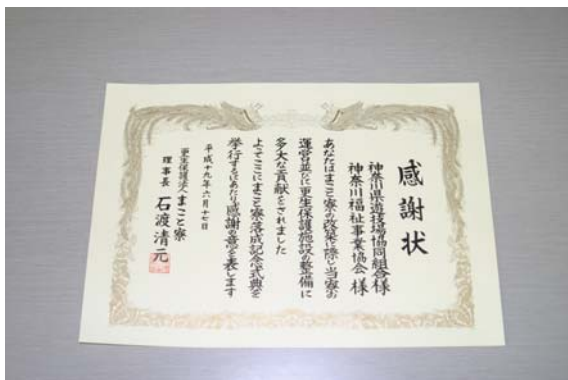 感謝状
神奈川県遊技場協同組合様
神奈川福祉事業協会様
あなたはまこと寮の改築に際し当寮の
運営並びに更生保護施設の整備に
多大な貢献をされました
よってここにまこと寮落成記念式典を
挙行するにあたり感謝の意を表します
平成十九年六月十七日
更生保護法人まこと寮
理事長 石渡清元